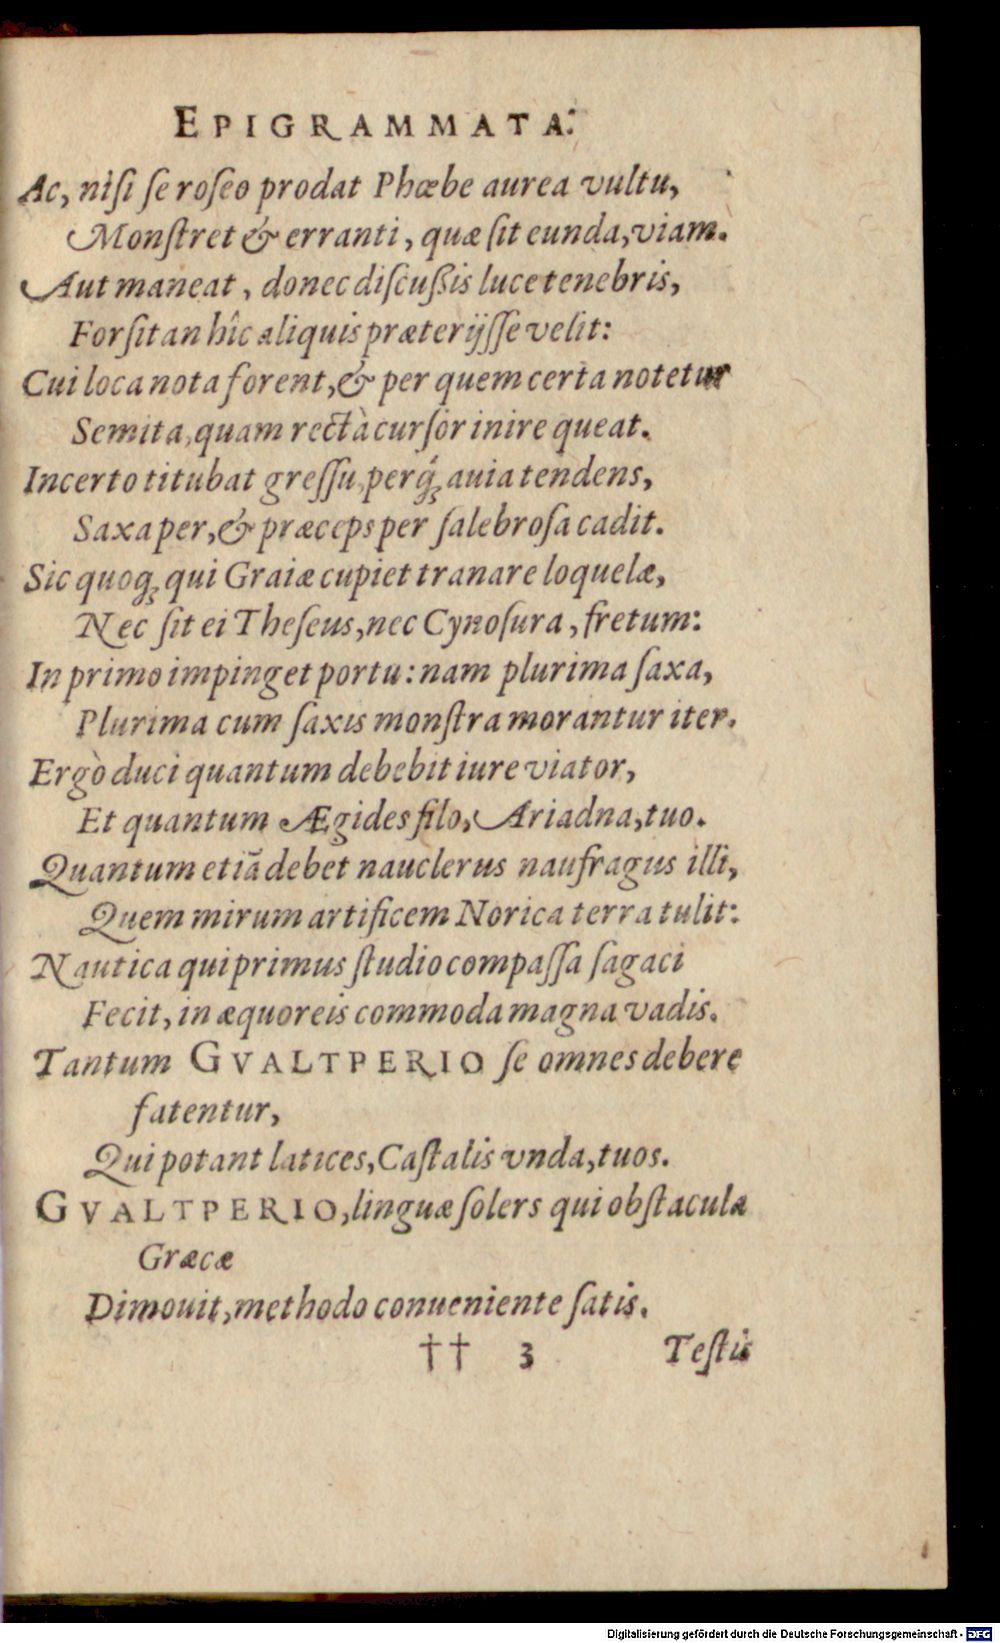 EPIGRAMMATA.
Ac, niſi ſe roſeo prodat Phœbe aurea vultu,
Monſtret & erranti, quæ ſit eunda, viam.
Aut maneat, donec diſcuſſis luce tenebris,
Forſitan hîc aliquis præterijſſe velit:
Cui loca nota forent, & per quem certa notetur
Semita, quam rectà curſor inire queat.
Incerto titubat greſſu, perq́ꝫ auia tendens,
Saxa per, & præceps per ſalebroſa cadit.
Sic quoqꝫ qui Graiæ cupiet tranare loquelæ,
Nec ſit ei Theſeus, nec Cynoſura, fretum:
In primo impinget portu: nam plurima ſaxa,
Plurima cum ſaxis monſtra morantur iter.
Ergò duci quantum debebit iure viator,
Et quantum Ægides filo, Ariadna, tuo.
Quantum etiā debet nauclerus naufragus illi,
Quem mirum artificem Norica terra tulit:
Nautica qui primus ſtudio compaſſa ſagaci
Fecit, in æquoreis commoda magna vadis.
Tantum GVALTPERIO ſe omnes debere
fatentur,
Qui potant latices, Caſtalis vnda, tuos.
GVALTPERIO, linguæ ſolers qui obſtacula
Græcæ
Dimouit, methodo conueniente ſatis.
†† 3 Teſtis
Digitalisierung gefördert durch die Deutsche Forschungsgemeinschaft - DFG